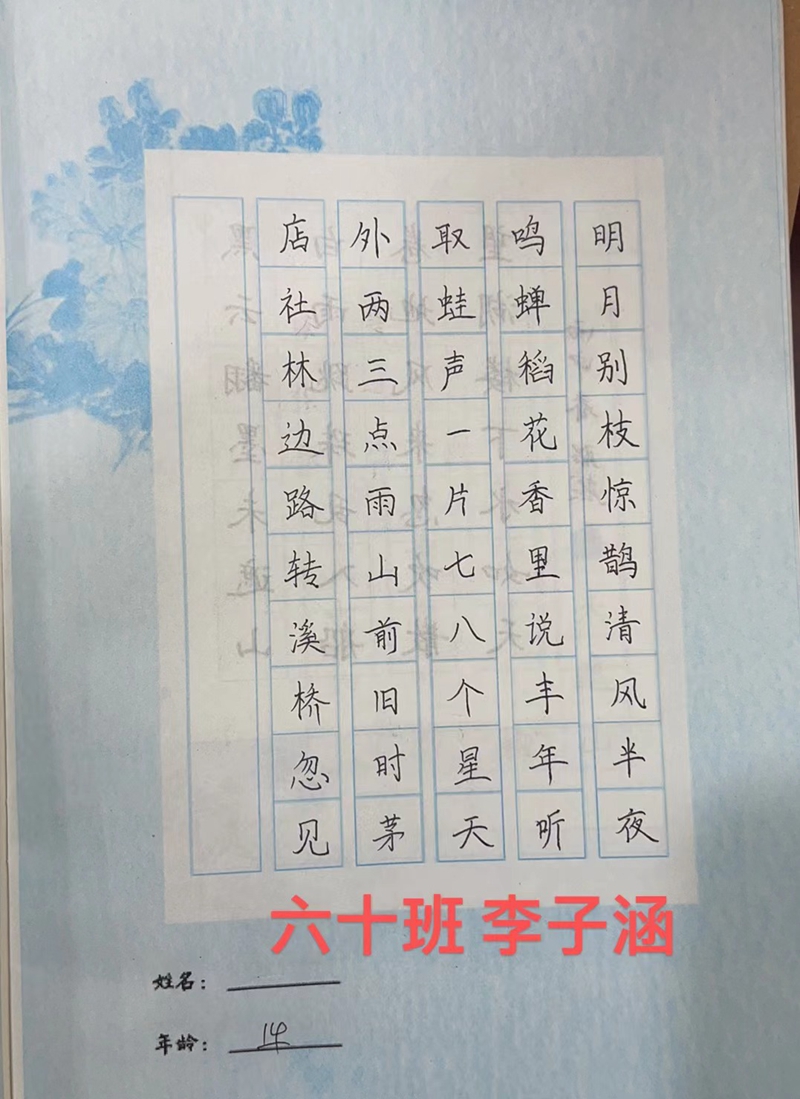 明月别枝惊鹊清风半夜
鸣蝉稻花香里说丰年听
取蛙声一片七八个星天
外两三点雨山前旧时茅
店社林边路转溪桥忽见
六十班 李子涵
姓名：
年龄：14